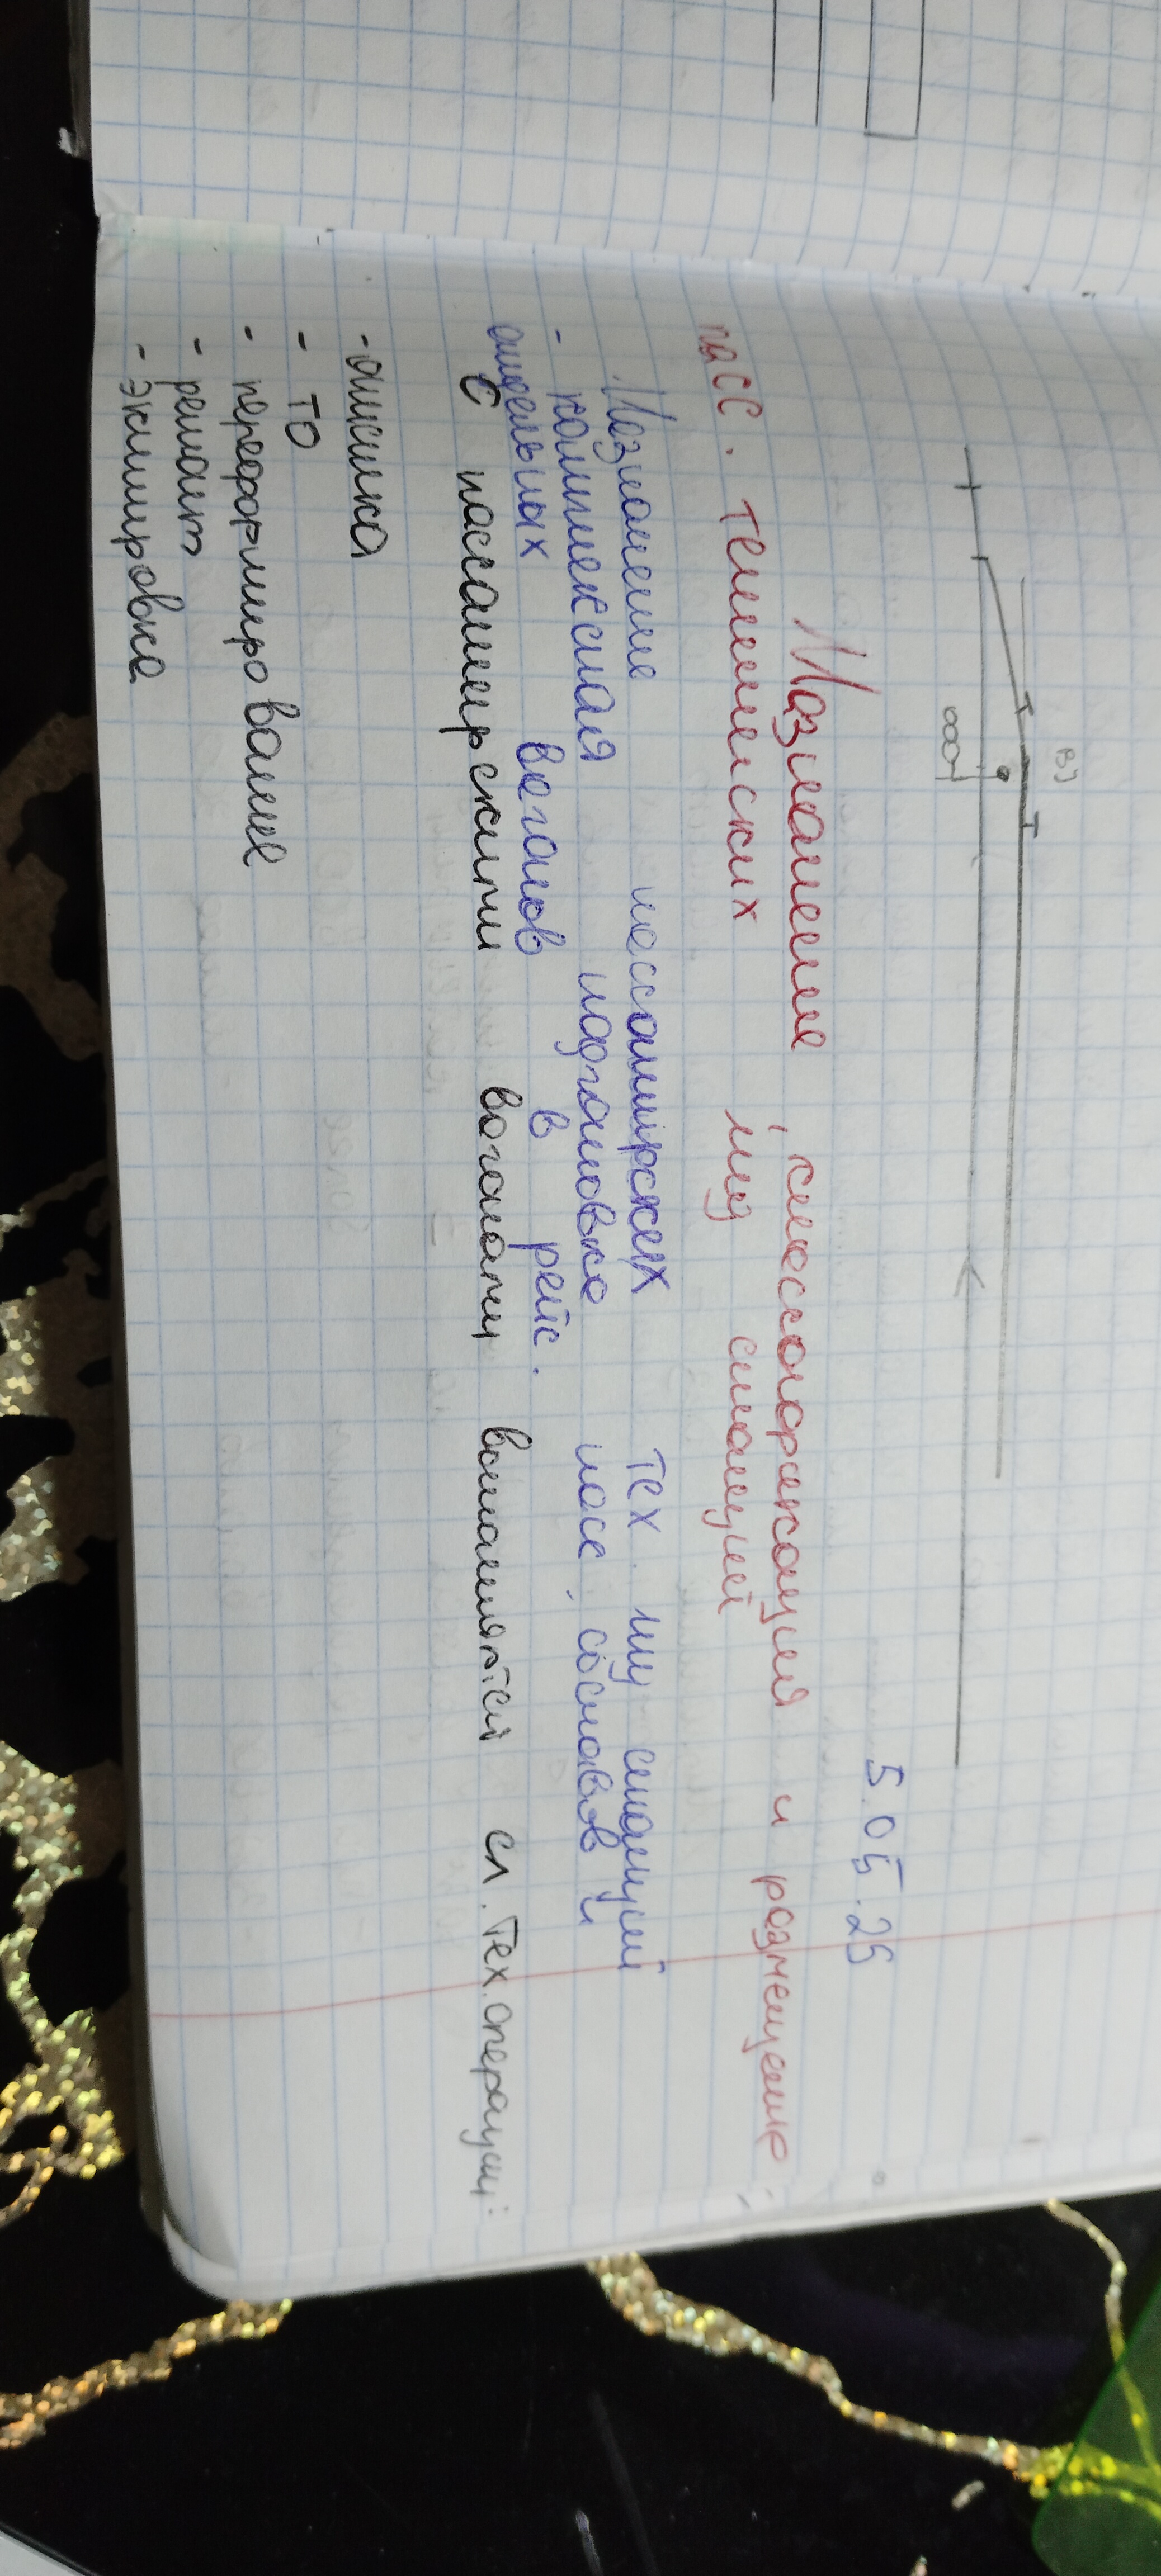 в)
5.05.25
Назначение, классификация и размещение
пасс. технических ж/д станций
Назначение пассажирских тех. ж/д станций
- комплексная подготовка пасс. составов и
отдельных вагонов в рейс.
С пассажирскими вагонами выполняются сл. Тех. операции:
- очистка
- ТО
- переформирование
- ремонт
- экипировка